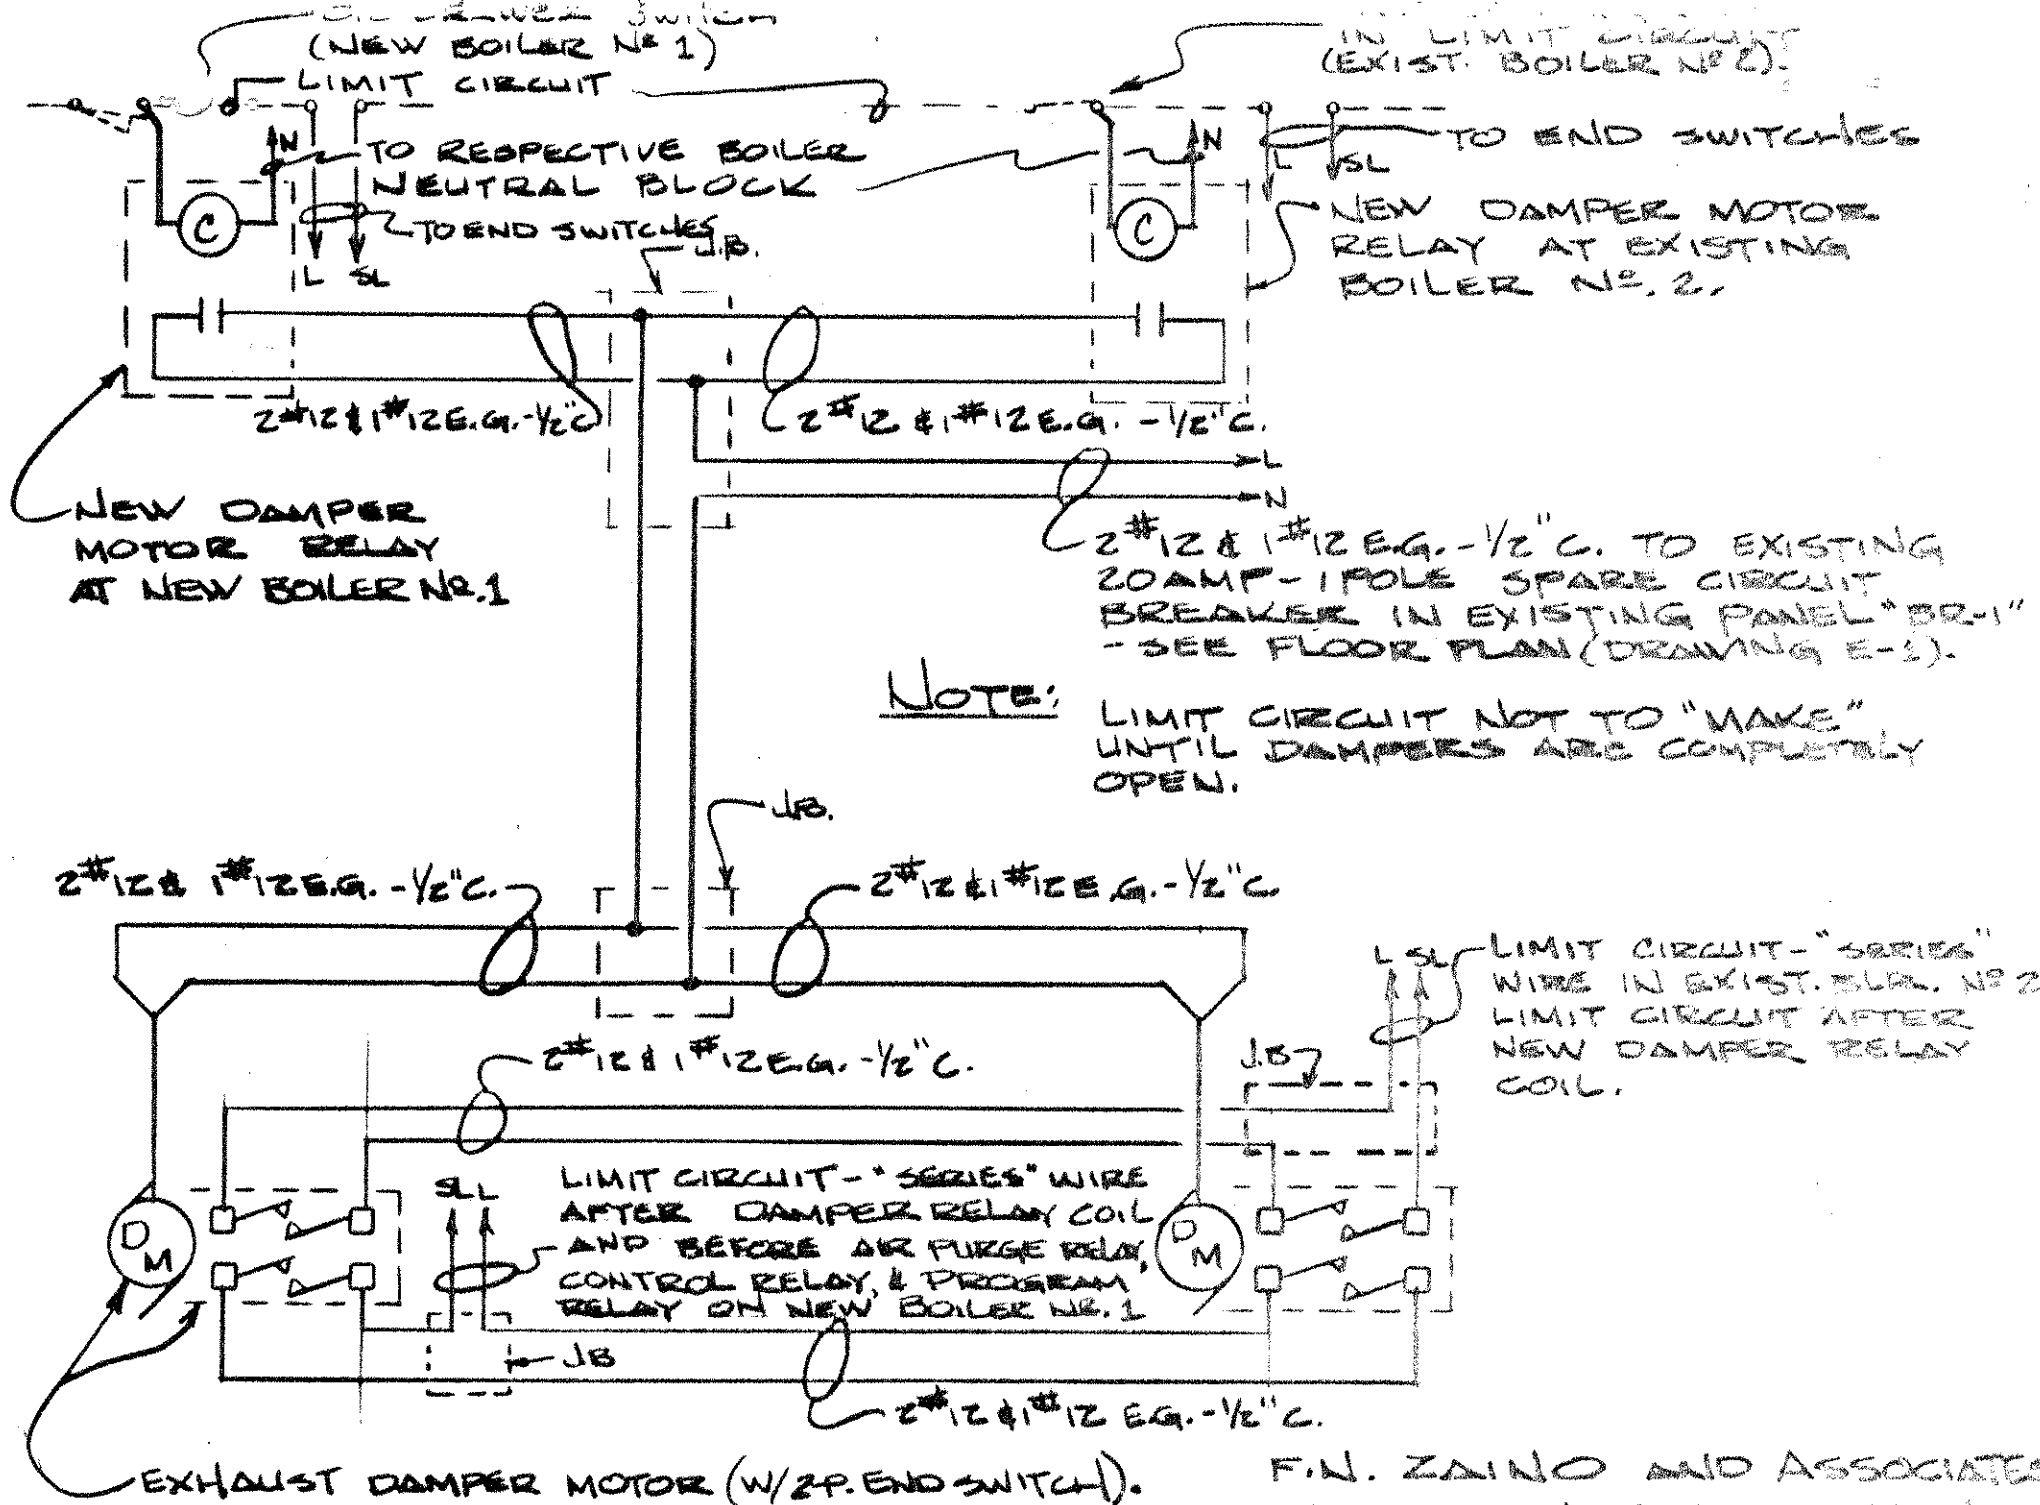 SWITCH
(NEW BOILER Nº 1)
LIMIT CIRCUIT
IN LIMIT CIRCUIT
(EXIST. BOILER Nº 2).
N
TO RESPECTIVE BOILER
NEUTRAL BLOCK
N
L
SL
TO END SWITCHES
C
TO END SWITCHES
J.B.
L
SL
C
NEW DAMPER MOTOR
RELAY AT EXISTING
BOILER Nº. 2.
2#12 & 1#12 E.G. - 1/2" C.
2#12 & 1#12 E.G. - 1/2" C.
L
N
NEW DAMPER
MOTOR RELAY
AT NEW BOILER Nº.1
2#12 & 1#12 E.G. - 1/2" C. TO EXISTING
20 AMP - 1 POLE SPARE CIRCUIT
BREAKER IN EXISTING PANEL "BR-1"
- SEE FLOOR PLAN (DRAWING E-1).
NOTE:
LIMIT CIRCUIT NOT TO "MAKE"
UNTIL DAMPERS ARE COMPLETELY
OPEN.
J.B.
2#12 & 1#12 E.G. - 1/2" C.
2#12 & 1#12 E.G. - 1/2" C.
L SL
LIMIT CIRCUIT - "SERIES"
WIRE IN EXIST. BLR. Nº 2
LIMIT CIRCUIT AFTER
NEW DAMPER RELAY
COIL.
2#12 & 1#12 E.G. - 1/2" C.
J.B
SL L
LIMIT CIRCUIT - "SERIES" WIRE
AFTER DAMPER RELAY COIL
AND BEFORE AIR PURGE RELAY,
CONTROL RELAY, & PROGRAM
RELAY ON NEW BOILER Nº. 1
D M
D M
JB
2#12 & 1#12 E.G. - 1/2" C.
EXHAUST DAMPER MOTOR (W/2P. END SWITCH).
F.N. ZAINO AND ASSOCIATES